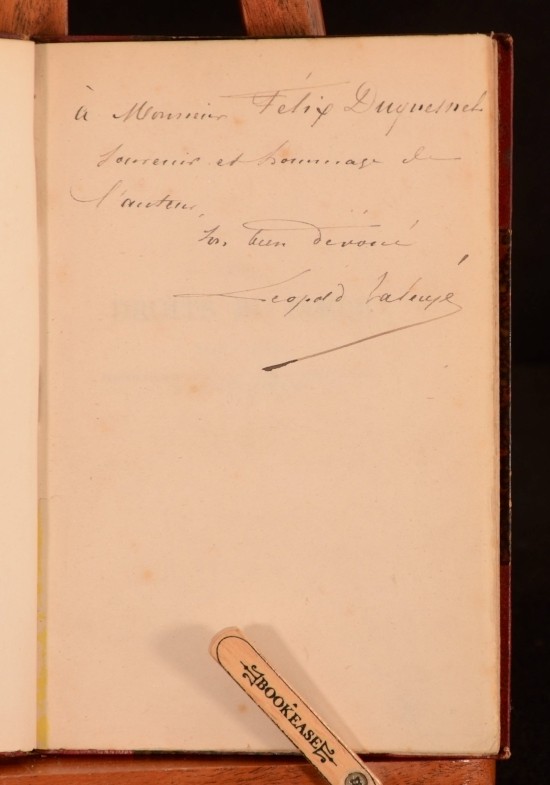 à Monsieur Félix Duquesnel
souvenir et hommage de
l'auteur,
Son bien dévoué
Léopold Laluyé
BOOKEASE